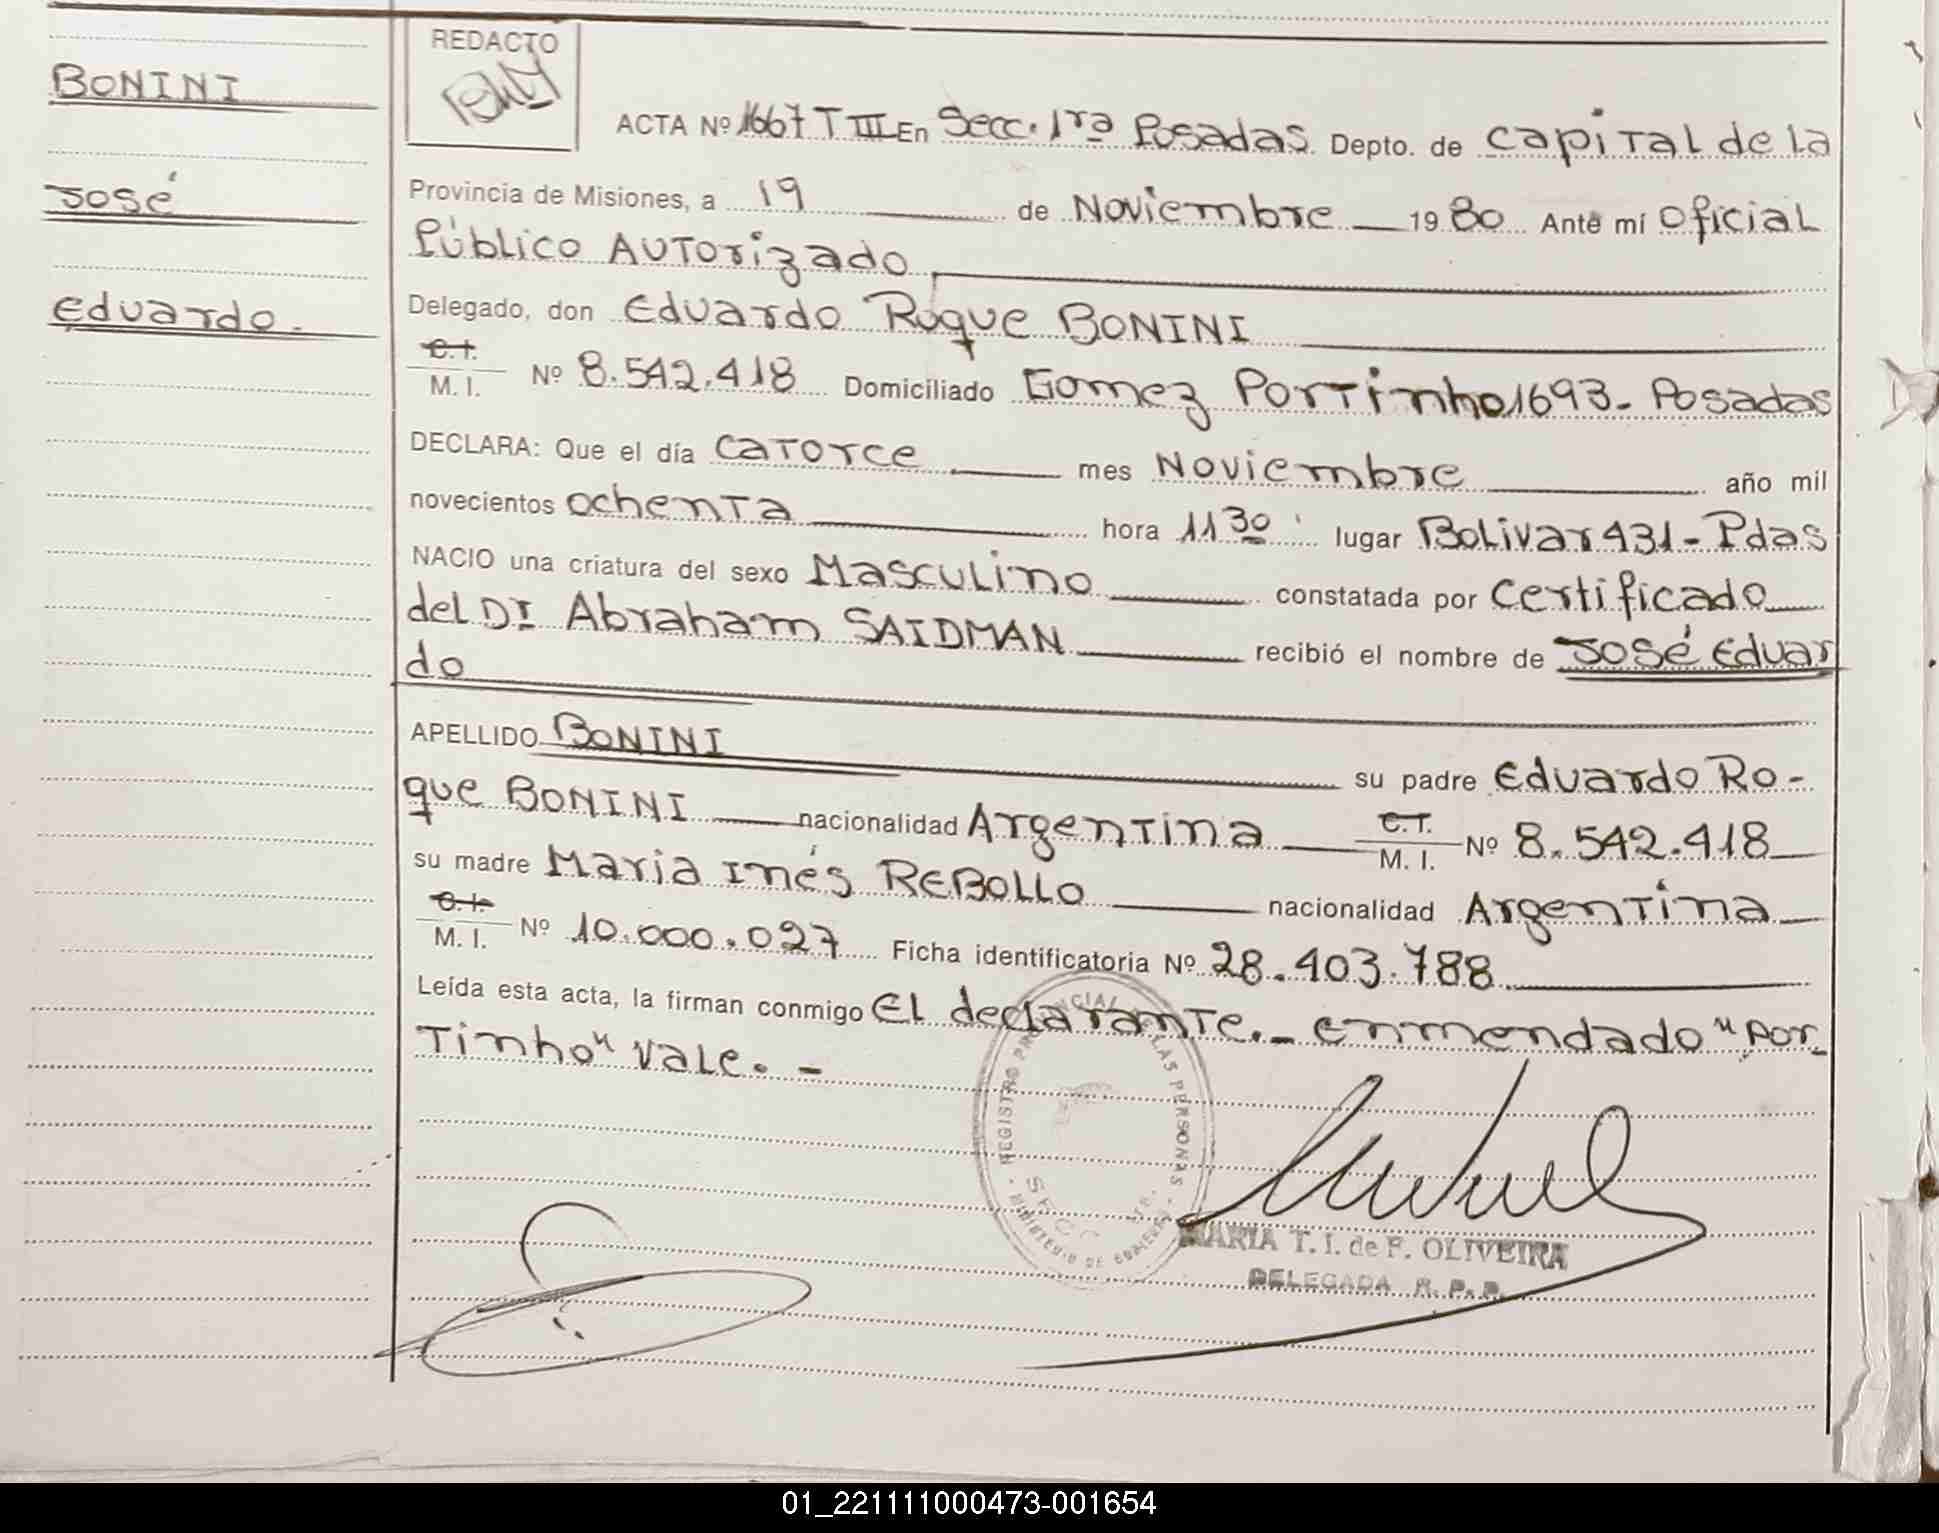 BONINI
José
Eduardo.
REDACTO
ACTA Nº 1667 T III En Secc. 1ra Posadas Depto. de Capital de la
Provincia de Misiones, a 19 de Noviembre 1980 Ante mí Oficial
Público Autorizado
Delegado, don Eduardo Roque BONINI
C.I.
M. I. Nº 8.542.418 Domiciliado Gomez Portinho 1693 - Posadas
DECLARA: Que el día catorce mes Noviembre año mil
novecientos ochenta hora 11 30 lugar Bolivar 431 - Pdas
NACIO una criatura del sexo Masculino constatada por Certificado
del Dr Abraham SAIDMAN recibió el nombre de José Eduar
do
APELLIDO BONINI su padre Eduardo Ro-
que BONINI nacionalidad Argentina C.I. M. I. Nº 8.542.418
su madre Maria Inés REBOLLO nacionalidad Argentina
C.I.
M. I. Nº 10.000.027 Ficha identificatoria Nº 28.403.788
Leída esta acta, la firman conmigo El declarante.- enmendado "Por-
tinho" vale. -
REGISTRO PROVINCIAL DE LAS PERSONAS
SECC. 1RA.
MINISTERIO DE GOBIERNO
MARIA T. I. de F. OLIVEIRA
DELEGADA R. P. P.
01_221111000473-001654